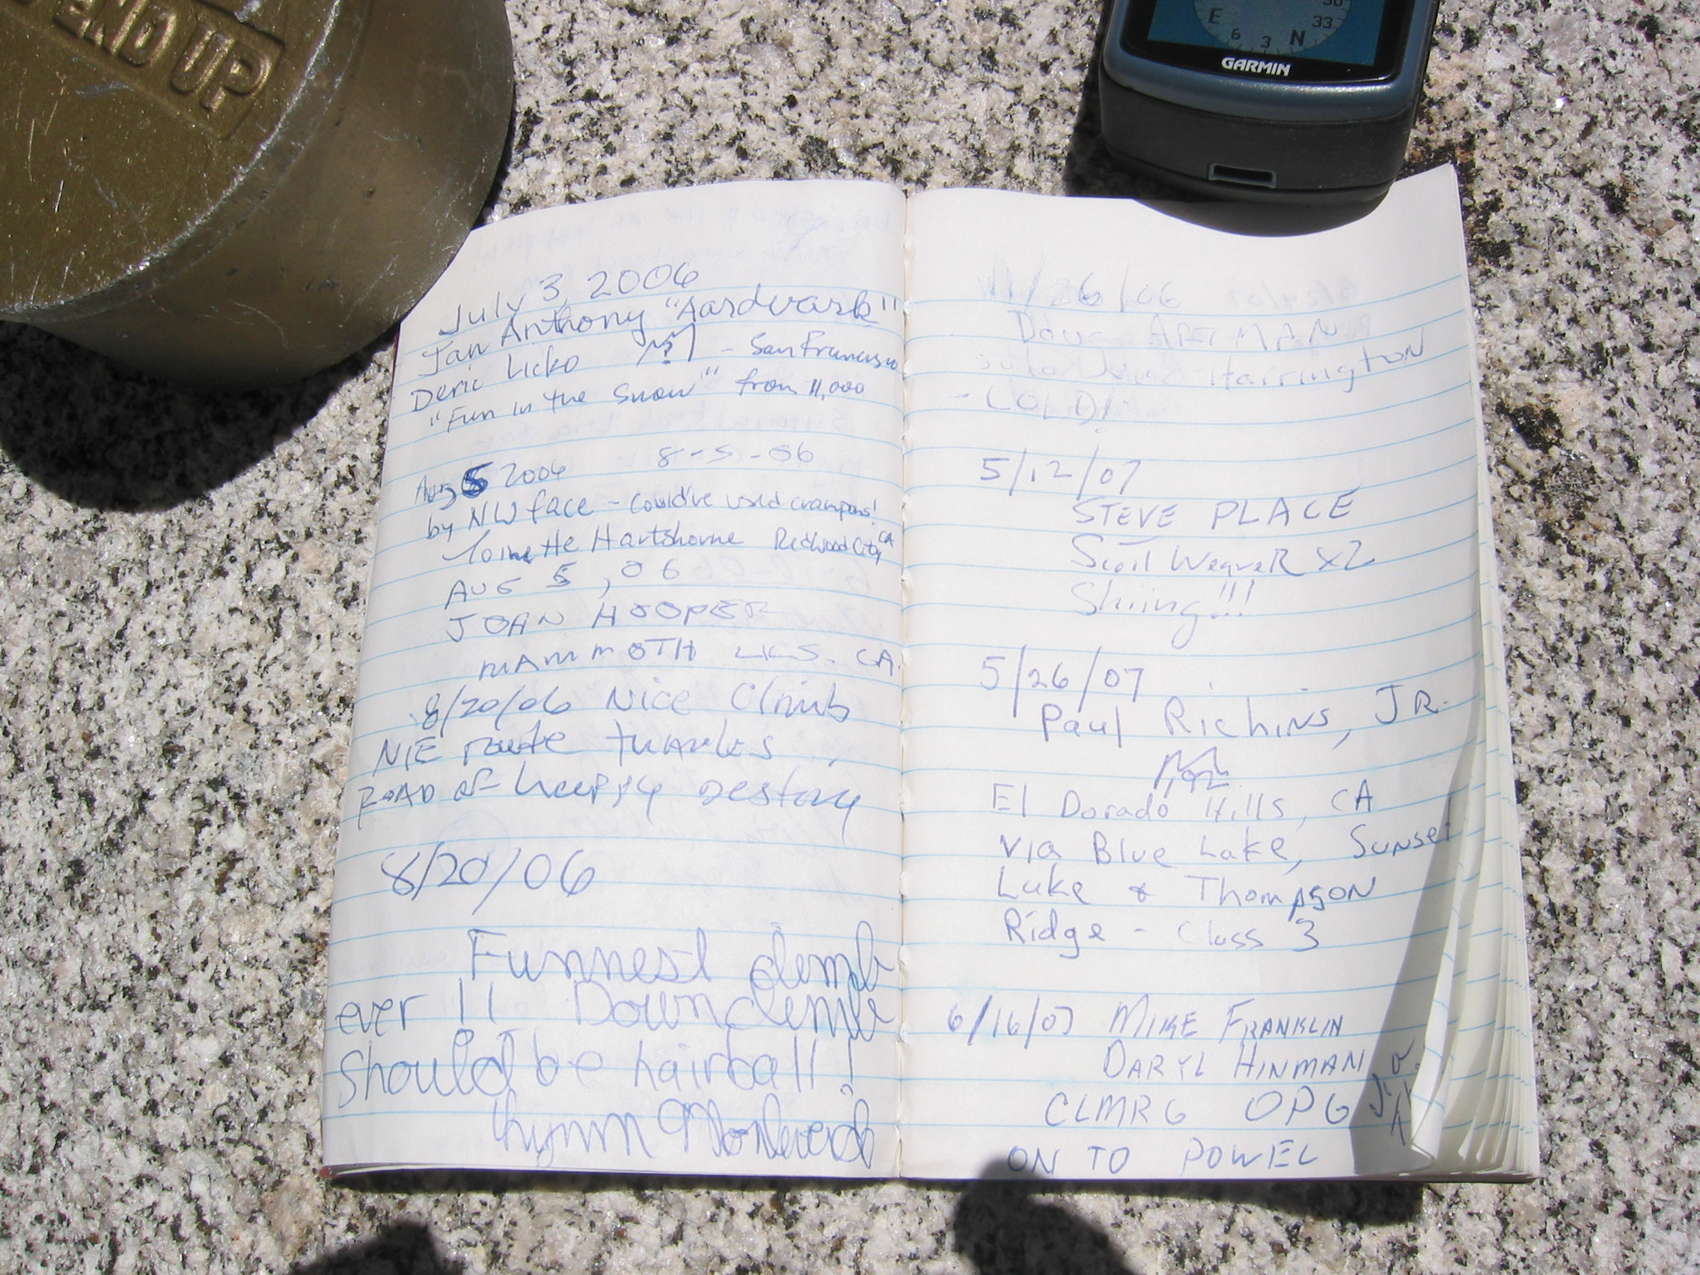 END UP
30
E 33
6 3 N
GARMIN
July 3, 2006
Jan Anthony "Aardvark"
Deric Licko - San Francisco
"Fun in the Snow" from 11,000
Aug 5 2006 8-5-06
by NW face - Could've used crampons!
Hartshorne Redwood City, CA
AUG 5, 06
JOAN HOOPER
MAMMOTH LKS. CA.
8/20/06 Nice Climb
NE route thanks
ROAD OF happy destiny
8/20/06
Funnest climb
ever !! Downclimb
should be hairball!
11/26/06
Doug
Harrington
- COLD!
5/12/07
STEVE PLACE
Scott Weaver x2
Skiing!!!
5/26/07
Paul Richins, JR.
El Dorado Hills, CA
via Blue Lake, Sunset
Lake & Thompson
Ridge - Class 3
6/16/07 MIKE FRANKLIN
DARYL HINMAN
CLMRG OPG
ON TO POWEL